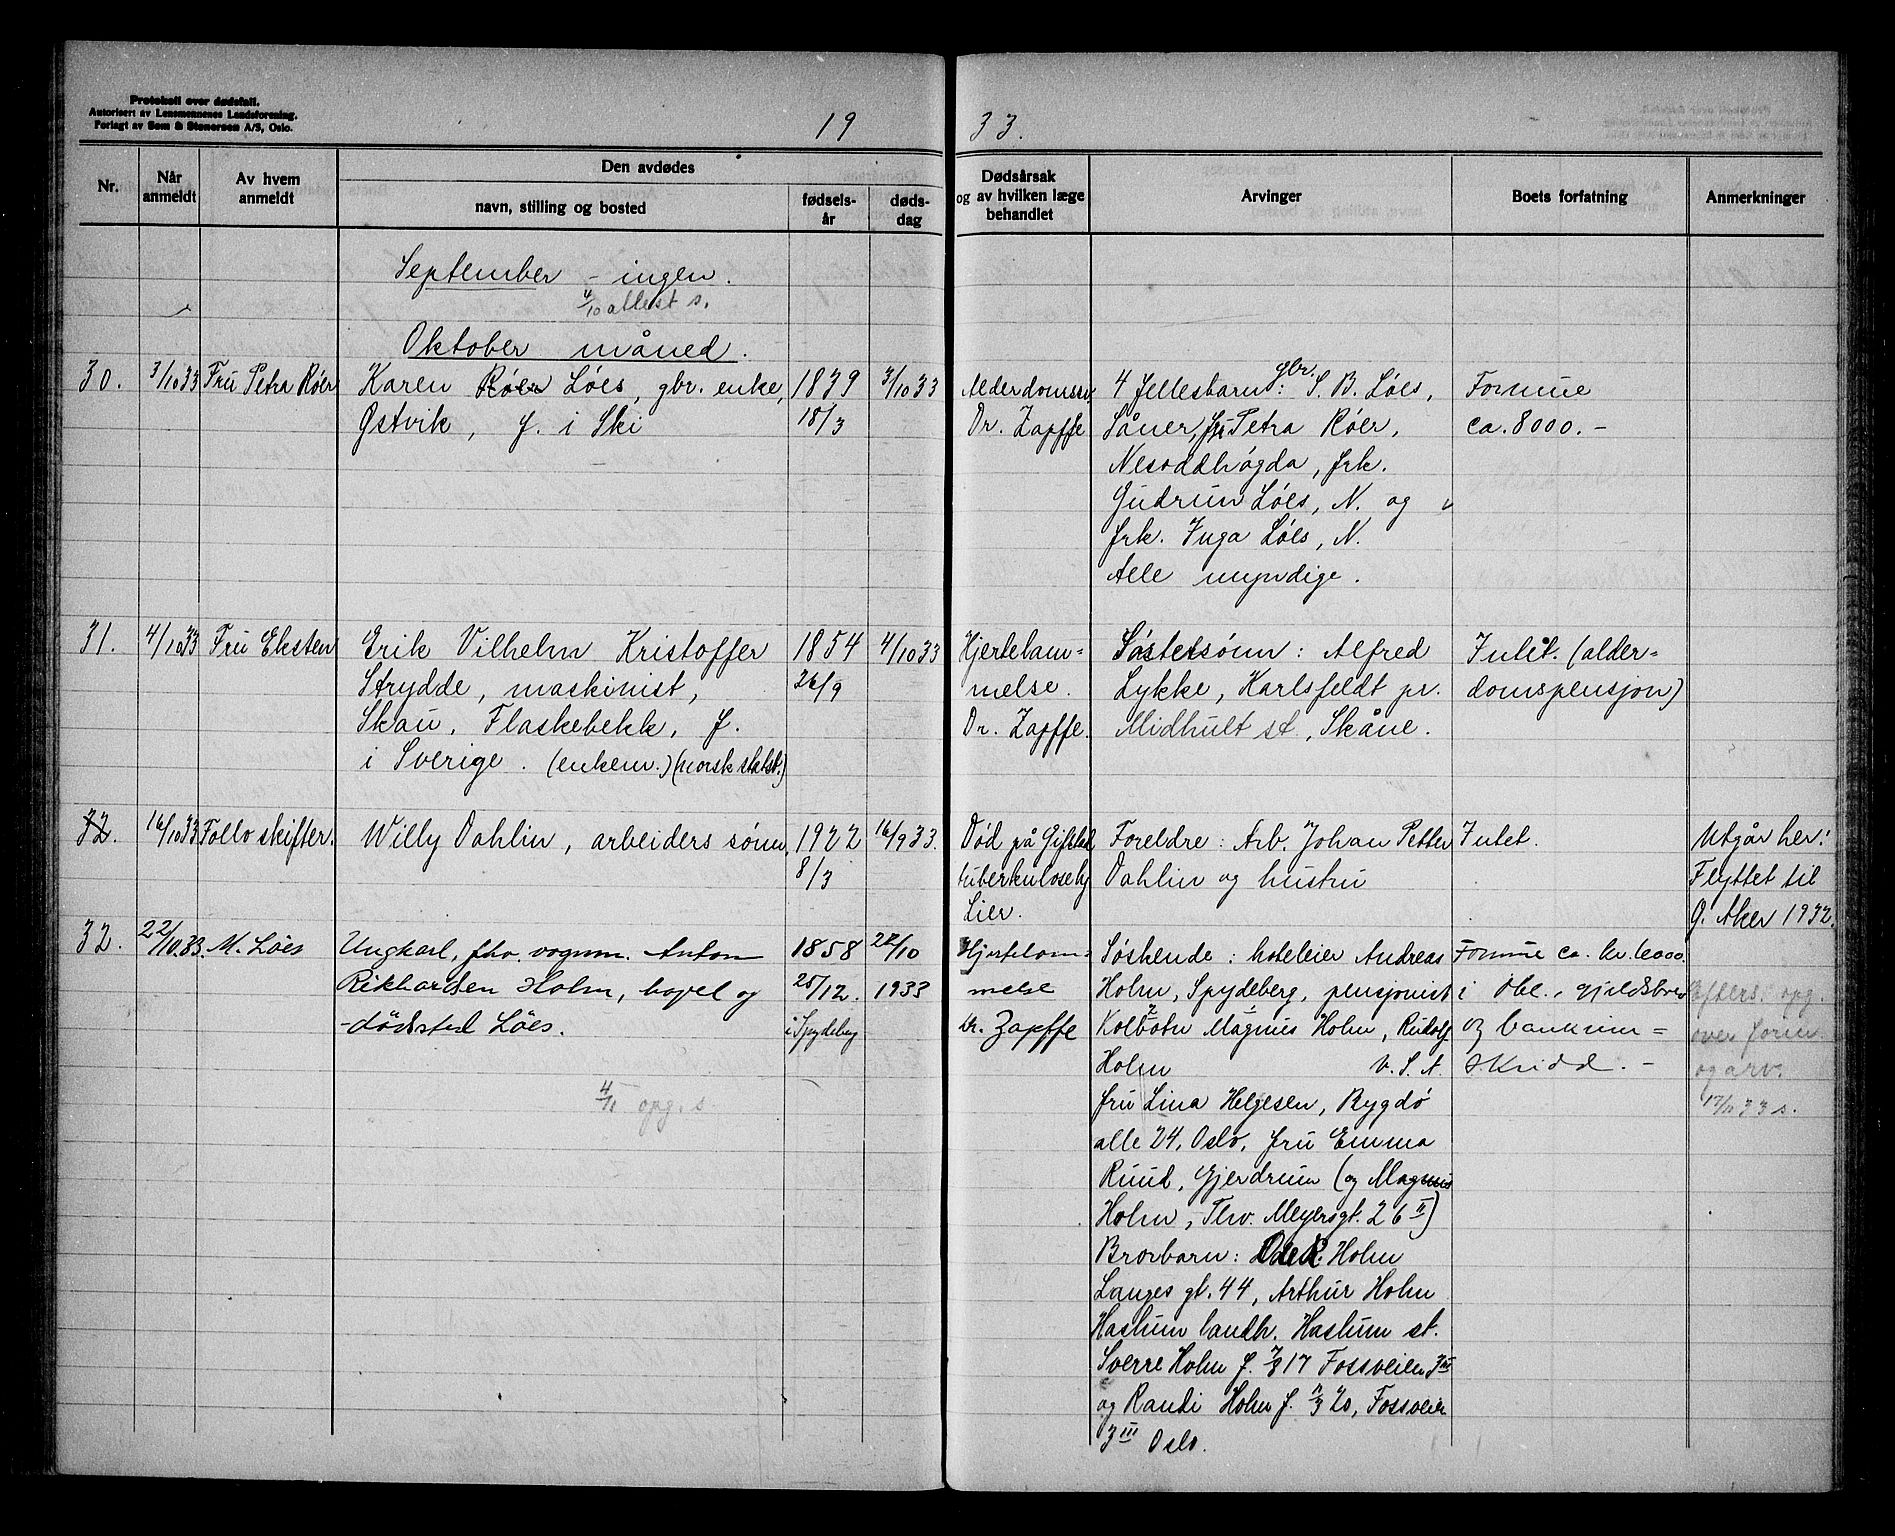 Protokoll over dødsfall.
Autorisert av Lensmennenes Landsforening.
Forlagt av Sem & Stenersen A/S, Oslo.
19 33.
Nr.
Når anmeldt
Av hvem anmeldt
Den avdødes
navn, stilling og bosted
fødsels-år
døds-dag
Dødsårsak
og av hvilken læge
behandlet
Arvinger
Boets forfatning
Anmerkninger
September - ingen.
4/10 attest s.
Oktober måned.
30.
3/10 33
Fru Petra Røer
Karen Røer Løes, gbr. enke,
Østvik, f. i Ski
1839
18/3
3/10 33
Alderdomssv.
Dr. Zapffe
4 fellesbarn: gbr. S. B. Løes,
Såner, fru Petra Røer,
Nesoddhøgda, frk.
Gudrun Løes, N. og
frk. Inga Løes, N.
Alle myndige.
Formue
ca. 8000.-
31.
4/10 33
Fru Eksten
Erik Vilhelm Kristoffer
Strydde, maskinist,
Skau, Flaskebekk, f.
i Sverige. (enkem.) (norsk statsb.)
1854
26/9
4/10 33
Hjertelam=
melse.
Dr. Zapffe.
Søstersønn: Alfred
Lykke, Karlsfeldt pr.
Midhult st, Skåne.
Intet. (alder=
domspensjon)
32.
16/10 33
Follo skifter.
Willy Dahlin, arbeiders sønn,
1922
8/3
16/9 33.
Død på
tuberkulosehj
Lier.
Foreldre: Arb. Johan Petter
Dahlin og hustru
Intet.
Utgår her:
Flyttet til
Ø. Aker 1932.
32.
22/10.33.
M. Løes
Ungkarl, fhv. vognm. Anton
Rikhardsen Holm, bopel og
-dødsted Løes.
4/11 opg. s
1858
25/12.
i Spydeberg
22/10
1933
Hjertelam=
melse
Dr. Zapffe
Søskende: hoteleier Andreas
Holm, Spydeberg, pensjonist
Kolbotn Magnus Holm, Rudolf
Holm U. S. A.
fru Lina Helgesen, Bygdø
alle 24, Oslo, fru Emma
Ruud, Gjerdrum (og Magnus
Holm, Thv. Meyersgt. 26 II)
Brorbarn: Holm
Langes gt. 44, Arthur Holm
Haslum landh. Haslum st.
Sverre Holm f. 7/8 17 Fossveien 3 III
og Randi Holm f. 11/3 20, Fossveien
3 III Oslo.
Formue ca. kr. 6000.
i obl., gjeldsbrev
og bankinn=
skudd. -
Efters. opg.
over form.
og arv.
17/11 33 s.